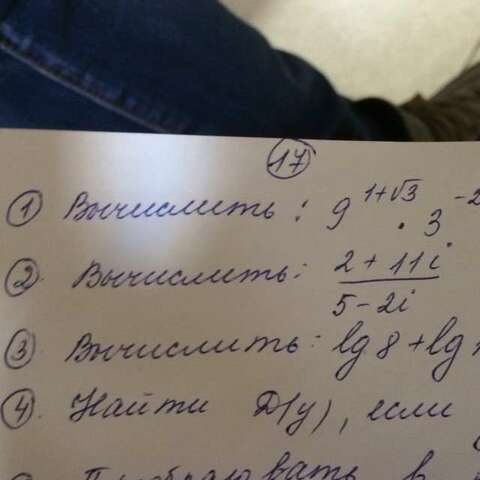 17
1 Вычислить: 9^{1+√3} · 3^{-2
2. Вычислить: \frac{2+11i}{5-2i}
3. Вычислить: lg 8 + lg
4. Найти D(y), если
в